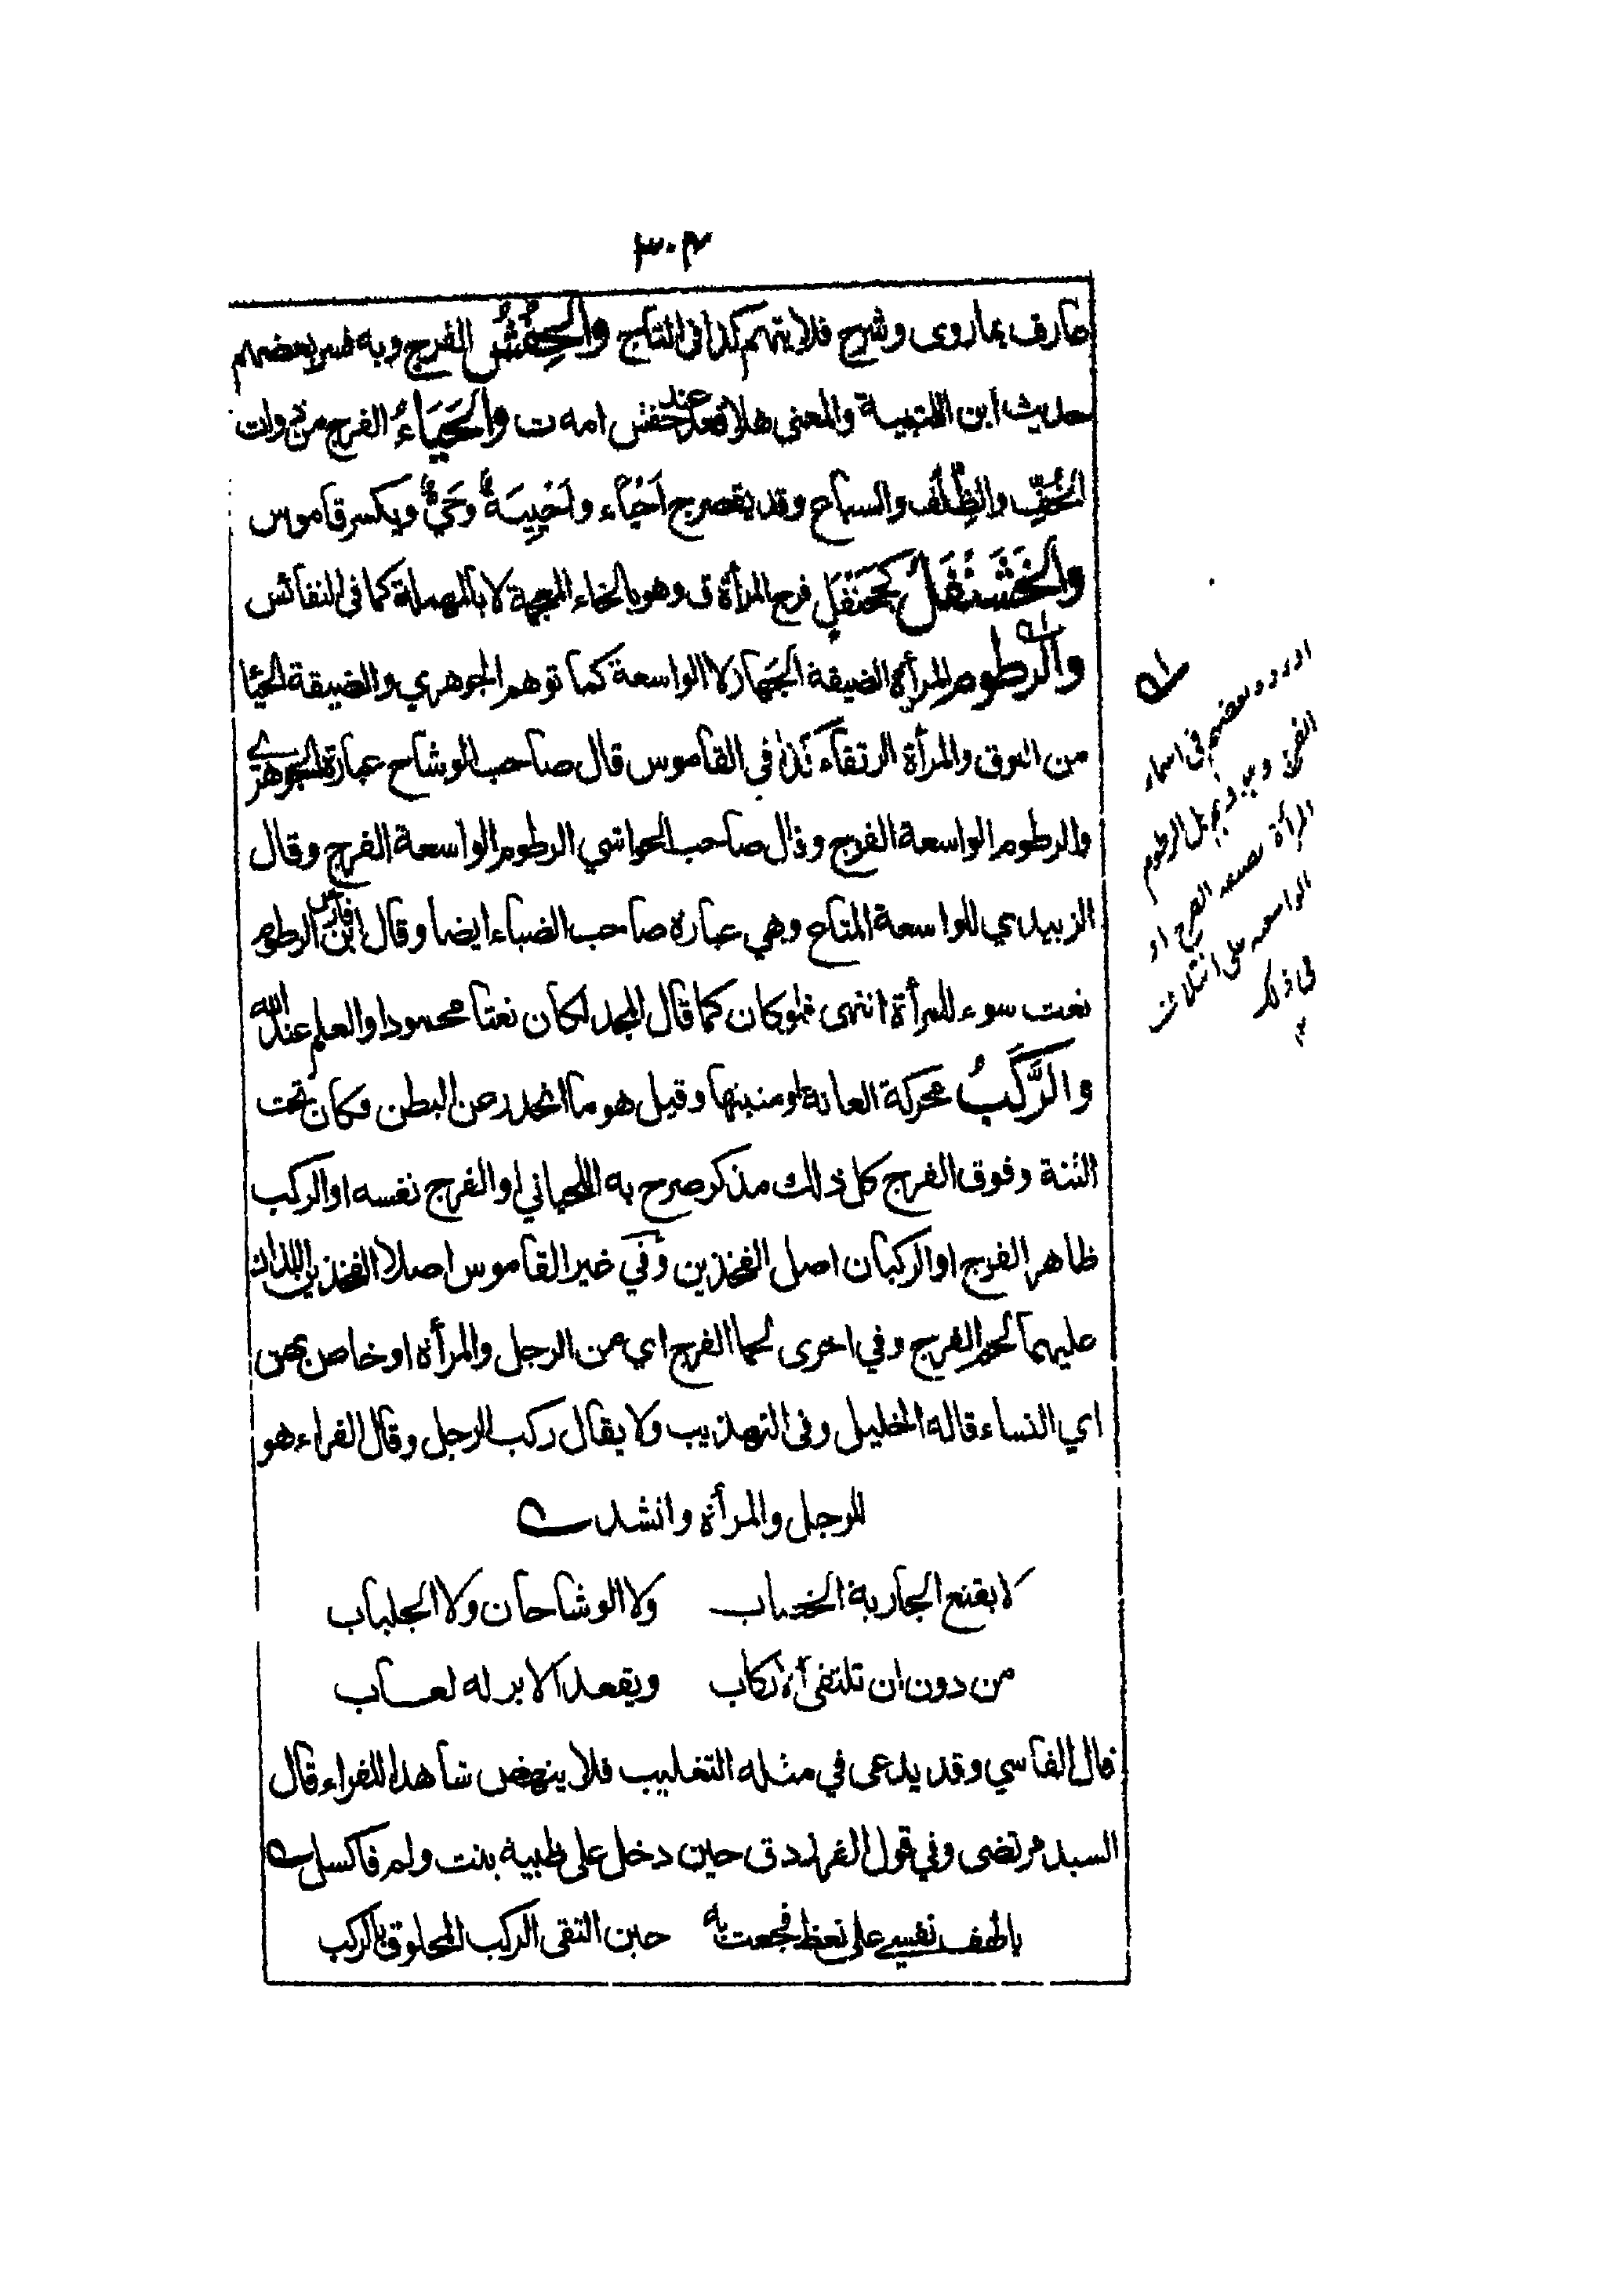 ٣٠٢
عارف بما روى وشرح فلا يتهم كذا في التاج والحِفْشُ الفرج وبه فسر بعضهم
حديث ابن اللتبية والمعنى هلا قعد عند حفش امه ت والحَيَاءُ الفرج من ذوات
الخُفِّ والظِّلْف والسباع وقد يقصر ج اَحْيَاء واَحْيِيَةٌ وحَيٌّ ويكسر قاموس
والخَشَنْفَلُ كجَحَنْفَلٍ فرج المرأة ق وهو بالخاء المعجمة لا بالمهملة كما في النفائس
والرطوم المرأة الضيقة الجَهاز لا الواسعة كما توهم الجوهري والضيقة الحيا
من النوق والمرأة الرتقاء كذا في القاموس قال صاحب الوشاح عبارة الجوهري
والرطوم الواسعة الفرج وقال صاحب الحواشي الرطوم الواسعة الفرج وقال
الزبيدي الواسعة المتاع وهي عبارة صاحب الضياء ايضا وقال ابن فارس الرطوم
نعت سوء للمرأة انتهى فلو كان كما قال المجد لكان نعتا محمودا والعلم عند الله
والرَّكَبُ محركة العانة او منبتها وقيل هو ما انحدر عن البطن فكان تحت
الثنة وفوق الفرج كل ذلك مذكر صرح به اللحياني او الفرج نفسه او الركب
ظاهر الفرج او الركبان اصل الفخذين وفي غير القاموس اصلا الفخذين اللذان
عليهما لحم الفرج وفي اخرى لحما الفرج اي من الرجل والمرأة او خاص بهن
اي النساء قاله الخليل وفي التهذيب ولا يقال ركب الرجل وقال الفراء هو
للرجل والمرأة وانشد
لا يقنع الجارية الخضاب ولا الوشاحان ولا الجلباب
من دون ان تلتقي الاركاب ويقعد الاير له لعاب
قال الفاسي وقد يدعى في مثله التغليب فلا ينهض شاهدا للفراء قال
السيد مرتضى وفي قول الفرزدق حين دخل على ظبية بنت ولم فاكسل
يا لهف نفسي على نعظ فجعت به حين التقى الركب المحلوق بالركب
بعضهم في اسماء
الفرج الرطوم
المرأة الفرج او
الواسعة على
في ذلك